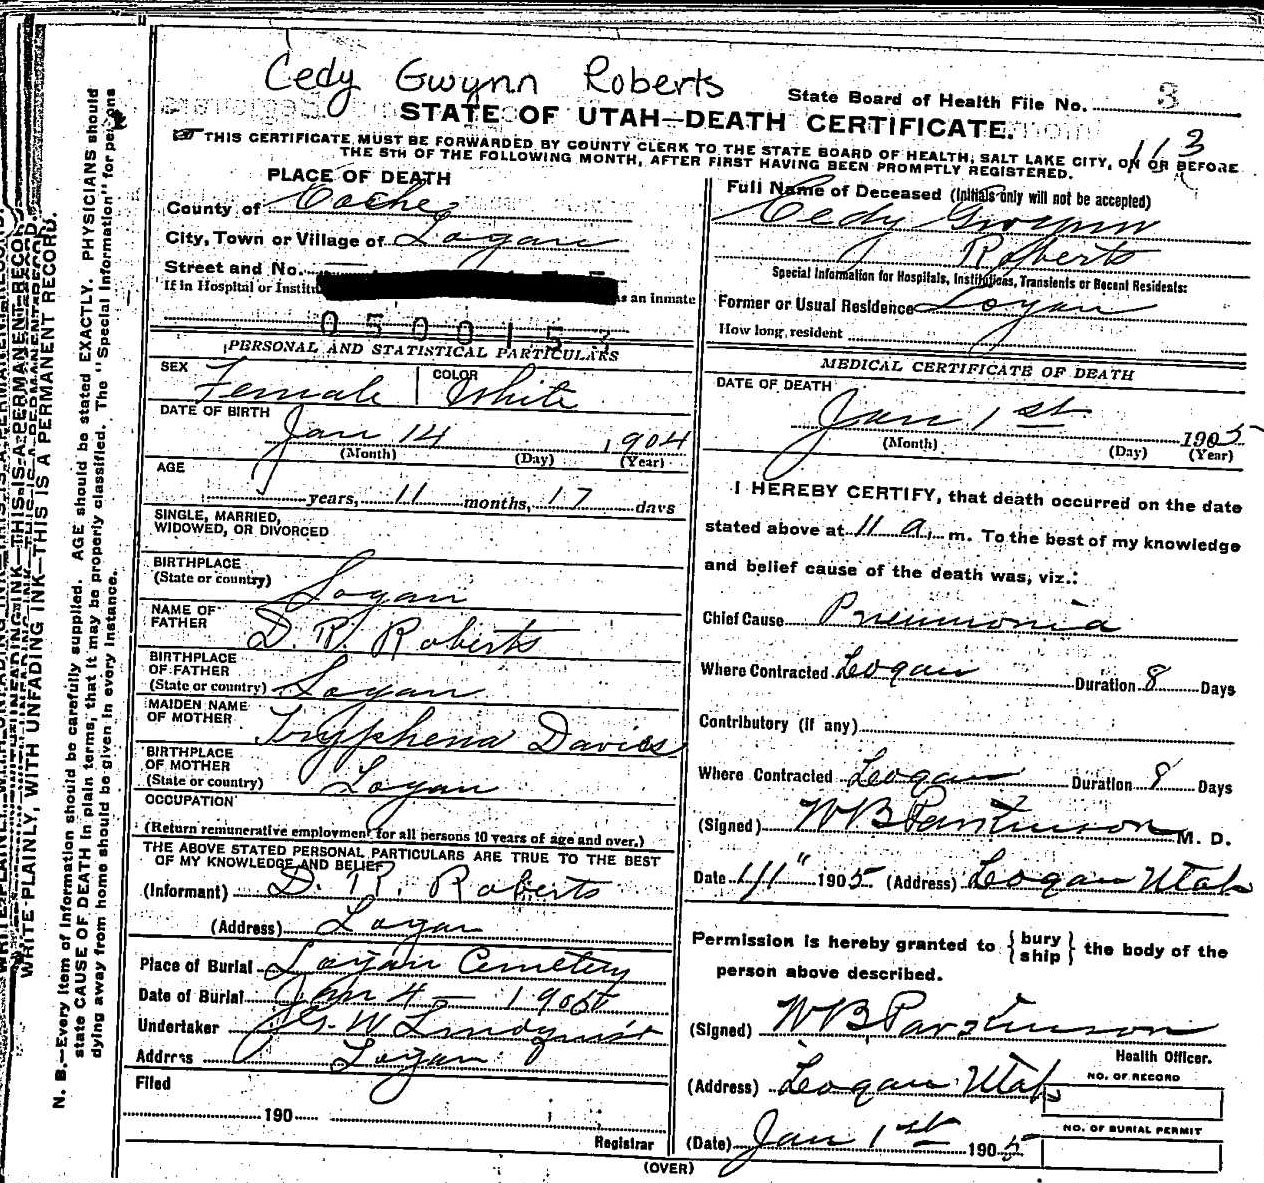 Cedy Gwynn Roberts
State Board of Health File No. 3
STATE OF UTAH—DEATH CERTIFICATE.
113
THIS CERTIFICATE MUST BE FORWARDED BY COUNTY CLERK TO THE STATE BOARD OF HEALTH, SALT LAKE CITY, ON OR BEFORE
THE 5TH OF THE FOLLOWING MONTH, AFTER FIRST HAVING BEEN PROMPTLY REGISTERED.
PLACE OF DEATH
County of Cache
City, Town or Village of Logan
Street and No.
If in Hospital or Institu
is an inmate
0500153
PERSONAL AND STATISTICAL PARTICULARS
SEX Female COLOR White
DATE OF BIRTH
Jan 14 1904
(Month) (Day) (Year)
AGE
years, 11 months, 17 days
SINGLE, MARRIED,
WIDOWED, OR DIVORCED
BIRTHPLACE
(State or country) Logan
NAME OF
FATHER D. R. Roberts
BIRTHPLACE
OF FATHER
(State or country) Logan
MAIDEN NAME
OF MOTHER Tryphena Davies
BIRTHPLACE
OF MOTHER
(State or country) Logan
OCCUPATION
(Return remunerative employment for all persons 10 years of age and over.)
THE ABOVE STATED PERSONAL PARTICULARS ARE TRUE TO THE BEST
OF MY KNOWLEDGE AND BELIEF
(Informant) D. R. Roberts
(Address) Logan
Place of Burial Logan Cemetery
Date of Burial Jan 4 - 1905
Undertaker G. W. Lindquist
Address Logan
Filed
190
Registrar
Full Name of Deceased (Initials only will not be accepted)
Cedy Gwynn
Roberts
Special Information for Hospitals, Institutions, Transients or Recent Residents:
Former or Usual Residence Logan
How long resident
MEDICAL CERTIFICATE OF DEATH
DATE OF DEATH
Jan 1st 1905
(Month) (Day) (Year)
I HEREBY CERTIFY, that death occurred on the date
stated above at 11 a. m. To the best of my knowledge
and belief cause of the death was, viz.:
Chief Cause Pneumonia
Where Contracted Logan Duration 8 Days
Contributory (if any)
Where Contracted Logan Duration 8 Days
(Signed) W B Parkinson M. D.
Date 1/1" 1905 (Address) Logan Utah
Permission is hereby granted to { bury ship } the body of the
person above described.
(Signed) W B Parkinson
Health Officer.
(Address) Logan Utah
NO. OF RECORD
(Date) Jan 1st 1905
NO. OF BURIAL PERMIT
(OVER)
WRITE PLAINLY, WITH UNFADING INK—THIS IS A PERMANENT RECORD.
N. B.—Every item of information should be carefully supplied. AGE should be stated EXACTLY. PHYSICIANS should
state CAUSE OF DEATH in plain terms, that it may be properly classified. The "Special Information" for persons
dying away from home should be given in every instance.